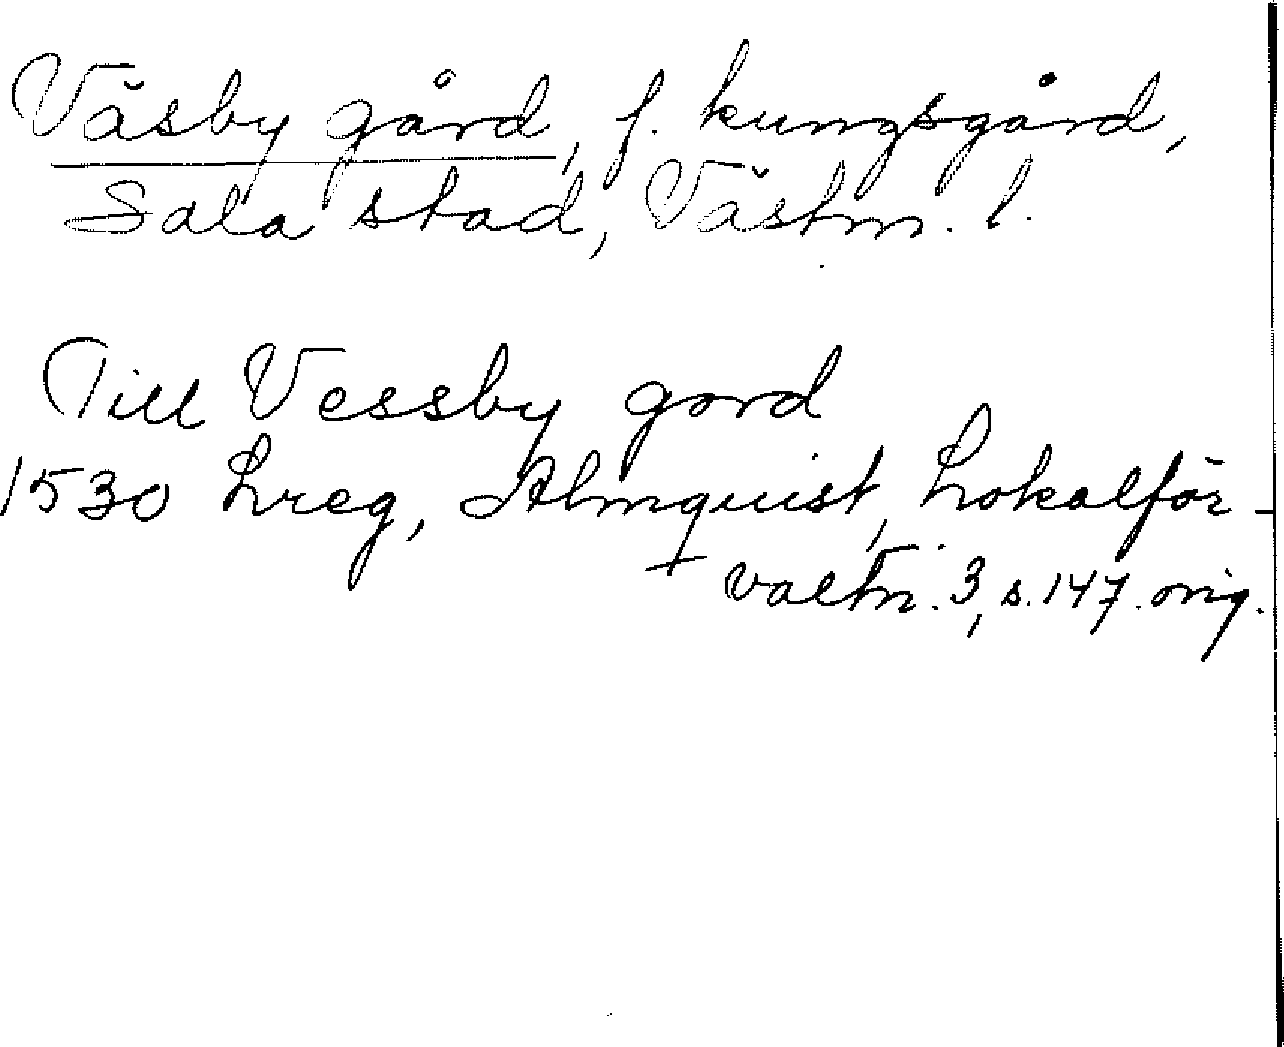 Väsby gård, f. kungsgård,
Sala stad, Västm. l.
Till Vessby gord
1530 Lreg, Almquist, Lokalför-
valtn. 3, s. 147. orig.